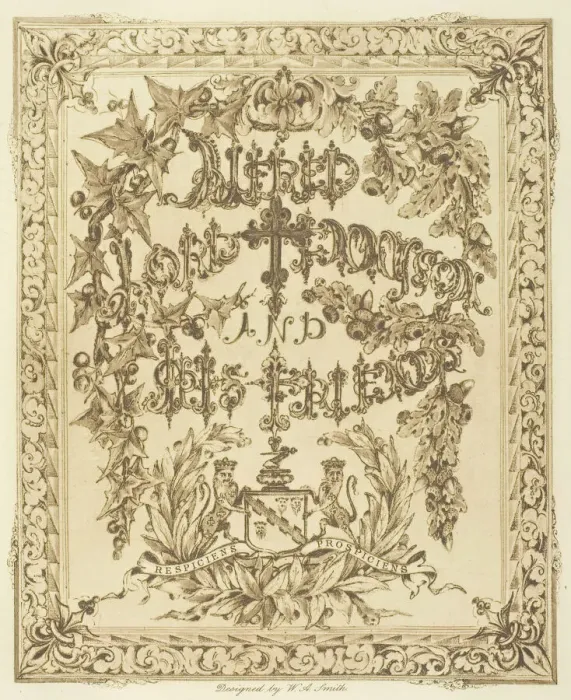 ALFRED
LORD TENNYSON
AND
HIS FRIENDS
RESPICIENS PROSPICIENS
Designed by W. A. Smith.